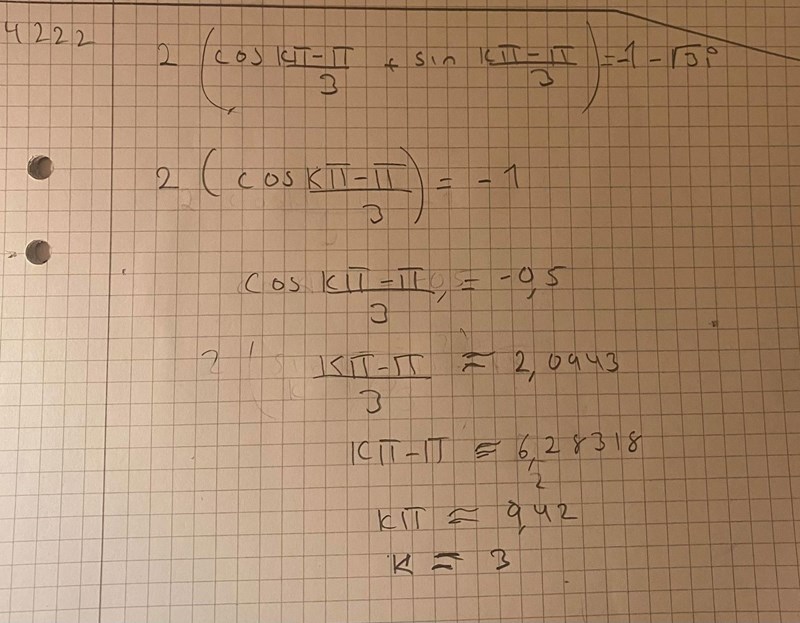 4222
2 (cos (kπ-π)/3 + sin (kπ-π)/3) = -1 - √3i
2 (cos (kπ-π)/3) = -1
cos (kπ-π)/3 = -0,5
(kπ-π)/3 ≈ 2,0943
kπ-π ≈ 6,28318
kπ ≈ 9,42
k = 3